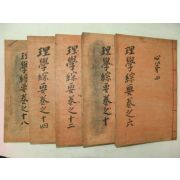 心卷四
理學綜要卷之六
理學綜要卷之十
理學綜要卷之十二
理學綜要卷之十四
理學綜要卷之十八